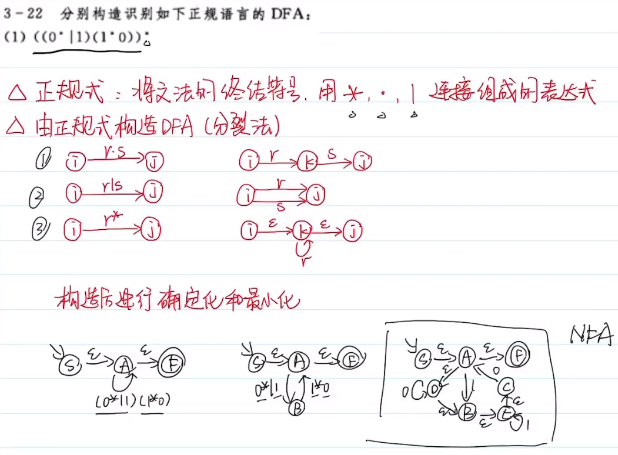 3-22 分别构造识别如下正规语言的 DFA:
(1) ((0*|1)(1*0))*
△ 正规式:将文法的终结符号,用 *, ·, | 连接组成的表达式
△ 由正规式构造DFA (分裂法)
① i r·s j i r k s j
② i r|s j i r s j
③ i r* j i ε k ε j r
构造后进行 确定化和最小化
NFA
S ε A ε F S ε A ε F S ε A ε F
(0*|1)(1*0) 0*|1 1*0 B 0 D ε 1 B ε E 1 ε C 0